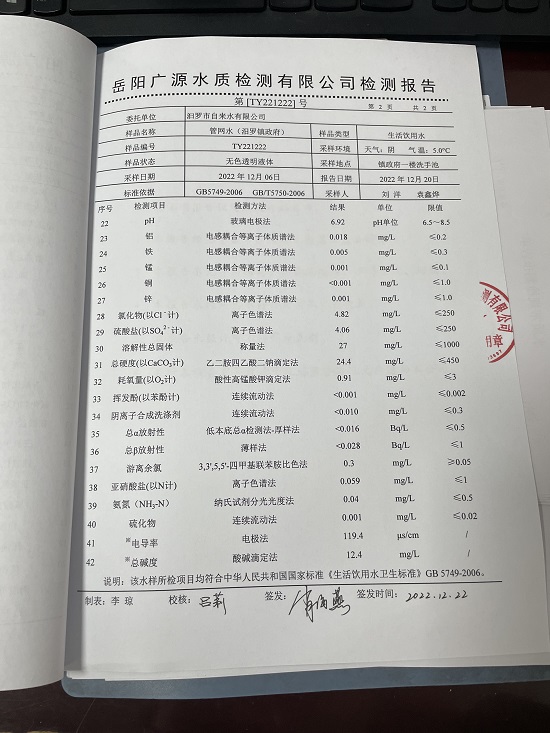 岳阳广源水质检测有限公司检测报告
第 [TY221222] 号 第 2 页 共 2 页
委托单位 汨罗市自来水有限公司
样品名称 管网水（汨罗镇政府） 样品类型 生活饮用水
样品编号 TY221222 采样环境 天气：阴 气温：5.0°C
样品状态 无色透明液体 采样地点 镇政府一楼洗手池
采样日期 2022 年 12 月 06 日 报告日期 2022 年 12 月 20 日
标准依据 GB5749-2006 GB/T5750-2006 采样人 刘 洋 袁鑫烨
序号 检测项目 检测方法 结果 单位 限值
22 pH 玻璃电极法 6.92 pH单位 6.5～8.5
23 铝 电感耦合等离子体质谱法 0.018 mg/L ≤0.2
24 铁 电感耦合等离子体质谱法 0.005 mg/L ≤0.3
25 锰 电感耦合等离子体质谱法 0.001 mg/L ≤0.1
26 铜 电感耦合等离子体质谱法 <0.001 mg/L ≤1.0
27 锌 电感耦合等离子体质谱法 0.001 mg/L ≤1.0
28 氯化物(以Cl⁻计) 离子色谱法 4.82 mg/L ≤250
29 硫酸盐(以SO₄²⁻计) 离子色谱法 4.06 mg/L ≤250
30 溶解性总固体 称量法 27 mg/L ≤1000
31 总硬度(以CaCO₃计) 乙二胺四乙酸二钠滴定法 24.4 mg/L ≤450
32 耗氧量(以O₂计) 酸性高锰酸钾滴定法 0.91 mg/L ≤3
33 挥发酚(以苯酚计) 连续流动法 <0.001 mg/L ≤0.002
34 阴离子合成洗涤剂 连续流动法 <0.010 mg/L ≤0.3
35 总α放射性 低本底总α检测法-厚样法 <0.016 Bq/L ≤0.5
36 总β放射性 薄样法 <0.028 Bq/L ≤1
37 游离余氯 3,3',5,5'-四甲基联苯胺比色法 0.3 mg/L ≥0.05
38 亚硝酸盐(以N计) 离子色谱法 0.059 mg/L ≤1
39 氨氮（NH₃-N） 纳氏试剂分光光度法 0.04 mg/L ≤0.5
40 硫化物 连续流动法 0.001 mg/L ≤0.02
41 ※电导率 电极法 119.4 μs/cm /
42 ※总碱度 酸碱滴定法 12.4 mg/L /
说明：该水样所检项目均符合中华人民共和国国家标准《生活饮用水卫生标准》GB 5749-2006。
制表：李 琼 校核：吕莉 签发： 签发时间：2022.12.22
测有限公司
用章